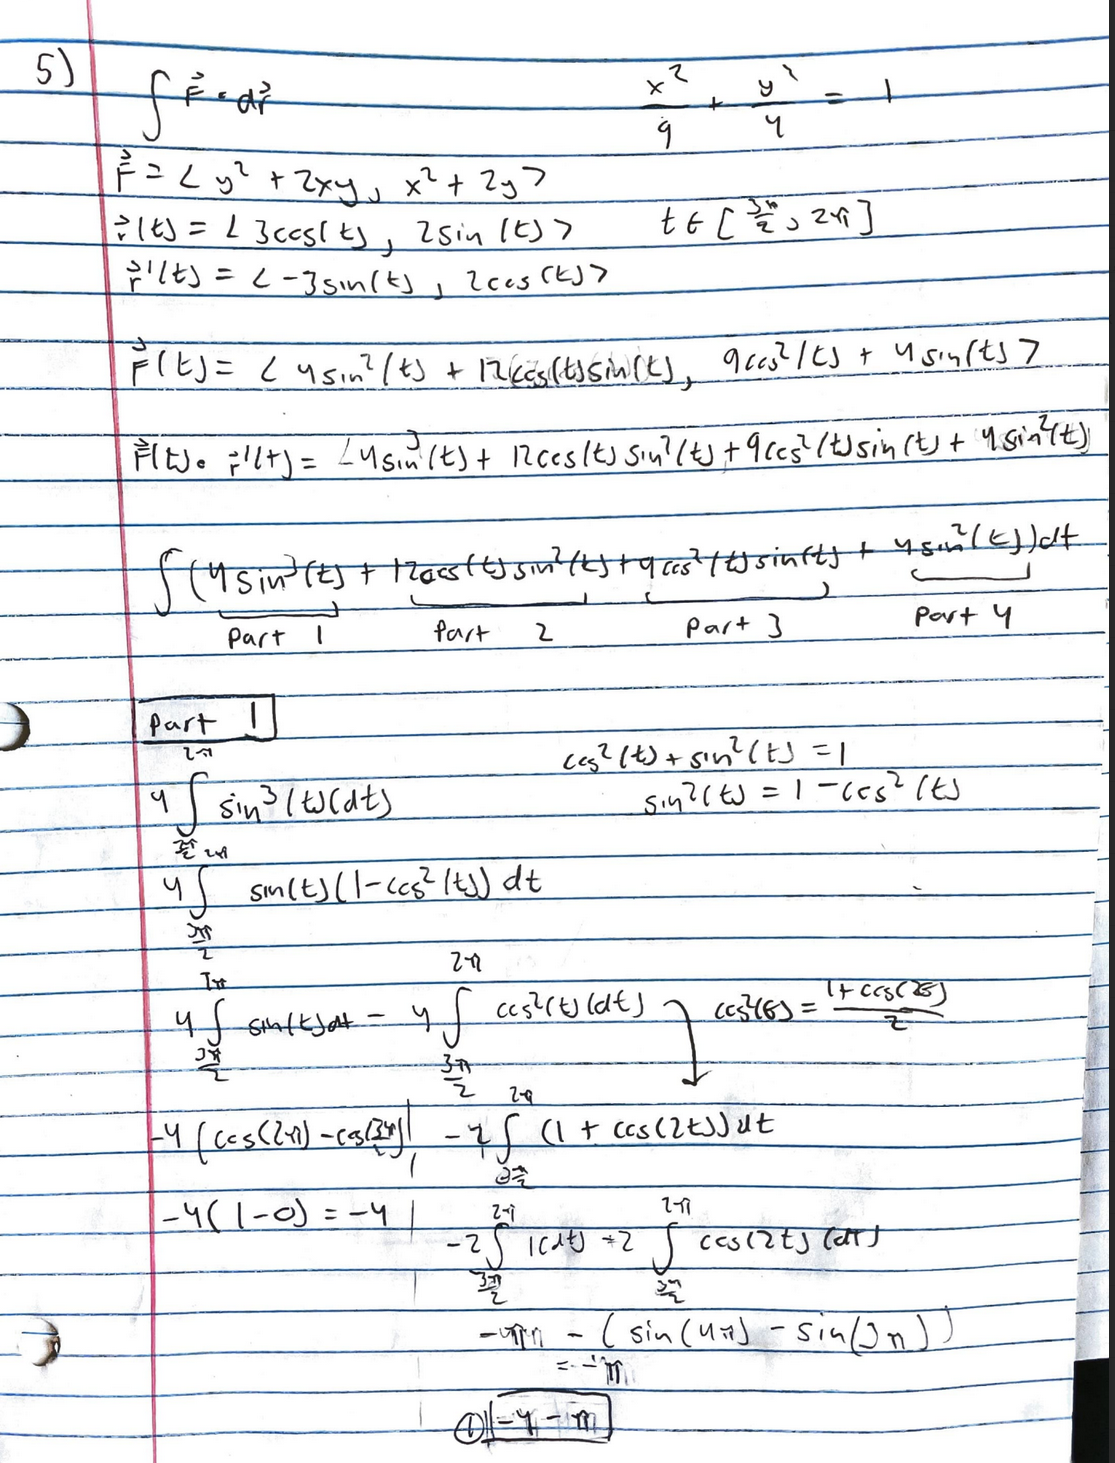 5)
∫ F⃗ · dr⃗    x²/9 + y²/4 = 1
F⃗ = < y² + 2xy, x² + 2y >
r⃗(t) = < 3cos(t), 2sin(t) >    t ∈ [3π/2, 2π]
r⃗'(t) = < -3sin(t), 2cos(t) >
F⃗(t) = < 4sin²(t) + 12cos(t)sin(t), 9cos²(t) + 4sin(t) >
F⃗(t) · r⃗'(t) = < 4sin³(t) + 12cos(t)sin²(t) + 9cos²(t)sin(t) + 4sin²(t)
∫ (4sin³(t) + 12cos(t)sin²(t) + 9cos²(t)sin(t) + 4sin²(t))dt
Part 1    Part 2    Part 3    Part 4
Part 1
4 ∫_{3π/2}^{2π} sin³(t)(dt)    cos²(t) + sin²(t) = 1
sin²(t) = 1 - cos²(t)
4 ∫_{3π/2}^{2π} sin(t)(1 - cos²(t)) dt
4 ∫_{3π/2}^{2π} sin(t)dt - 4 ∫_{3π/2}^{2π} cos²(t)(dt)    cos²(θ) = (1 + cos(2θ))/2
-4(cos(2π) - cos(3π/2)) | -2 ∫_{3π/2}^{2π} (1 + cos(2t))dt
-4(1-0) = -4 | -2 ∫_{3π/2}^{2π} 1(dt) - 2 ∫_{3π/2}^{2π} cos(2t)(dt)
- (sin(4π) - sin(3π))
= -π
① -4 - π